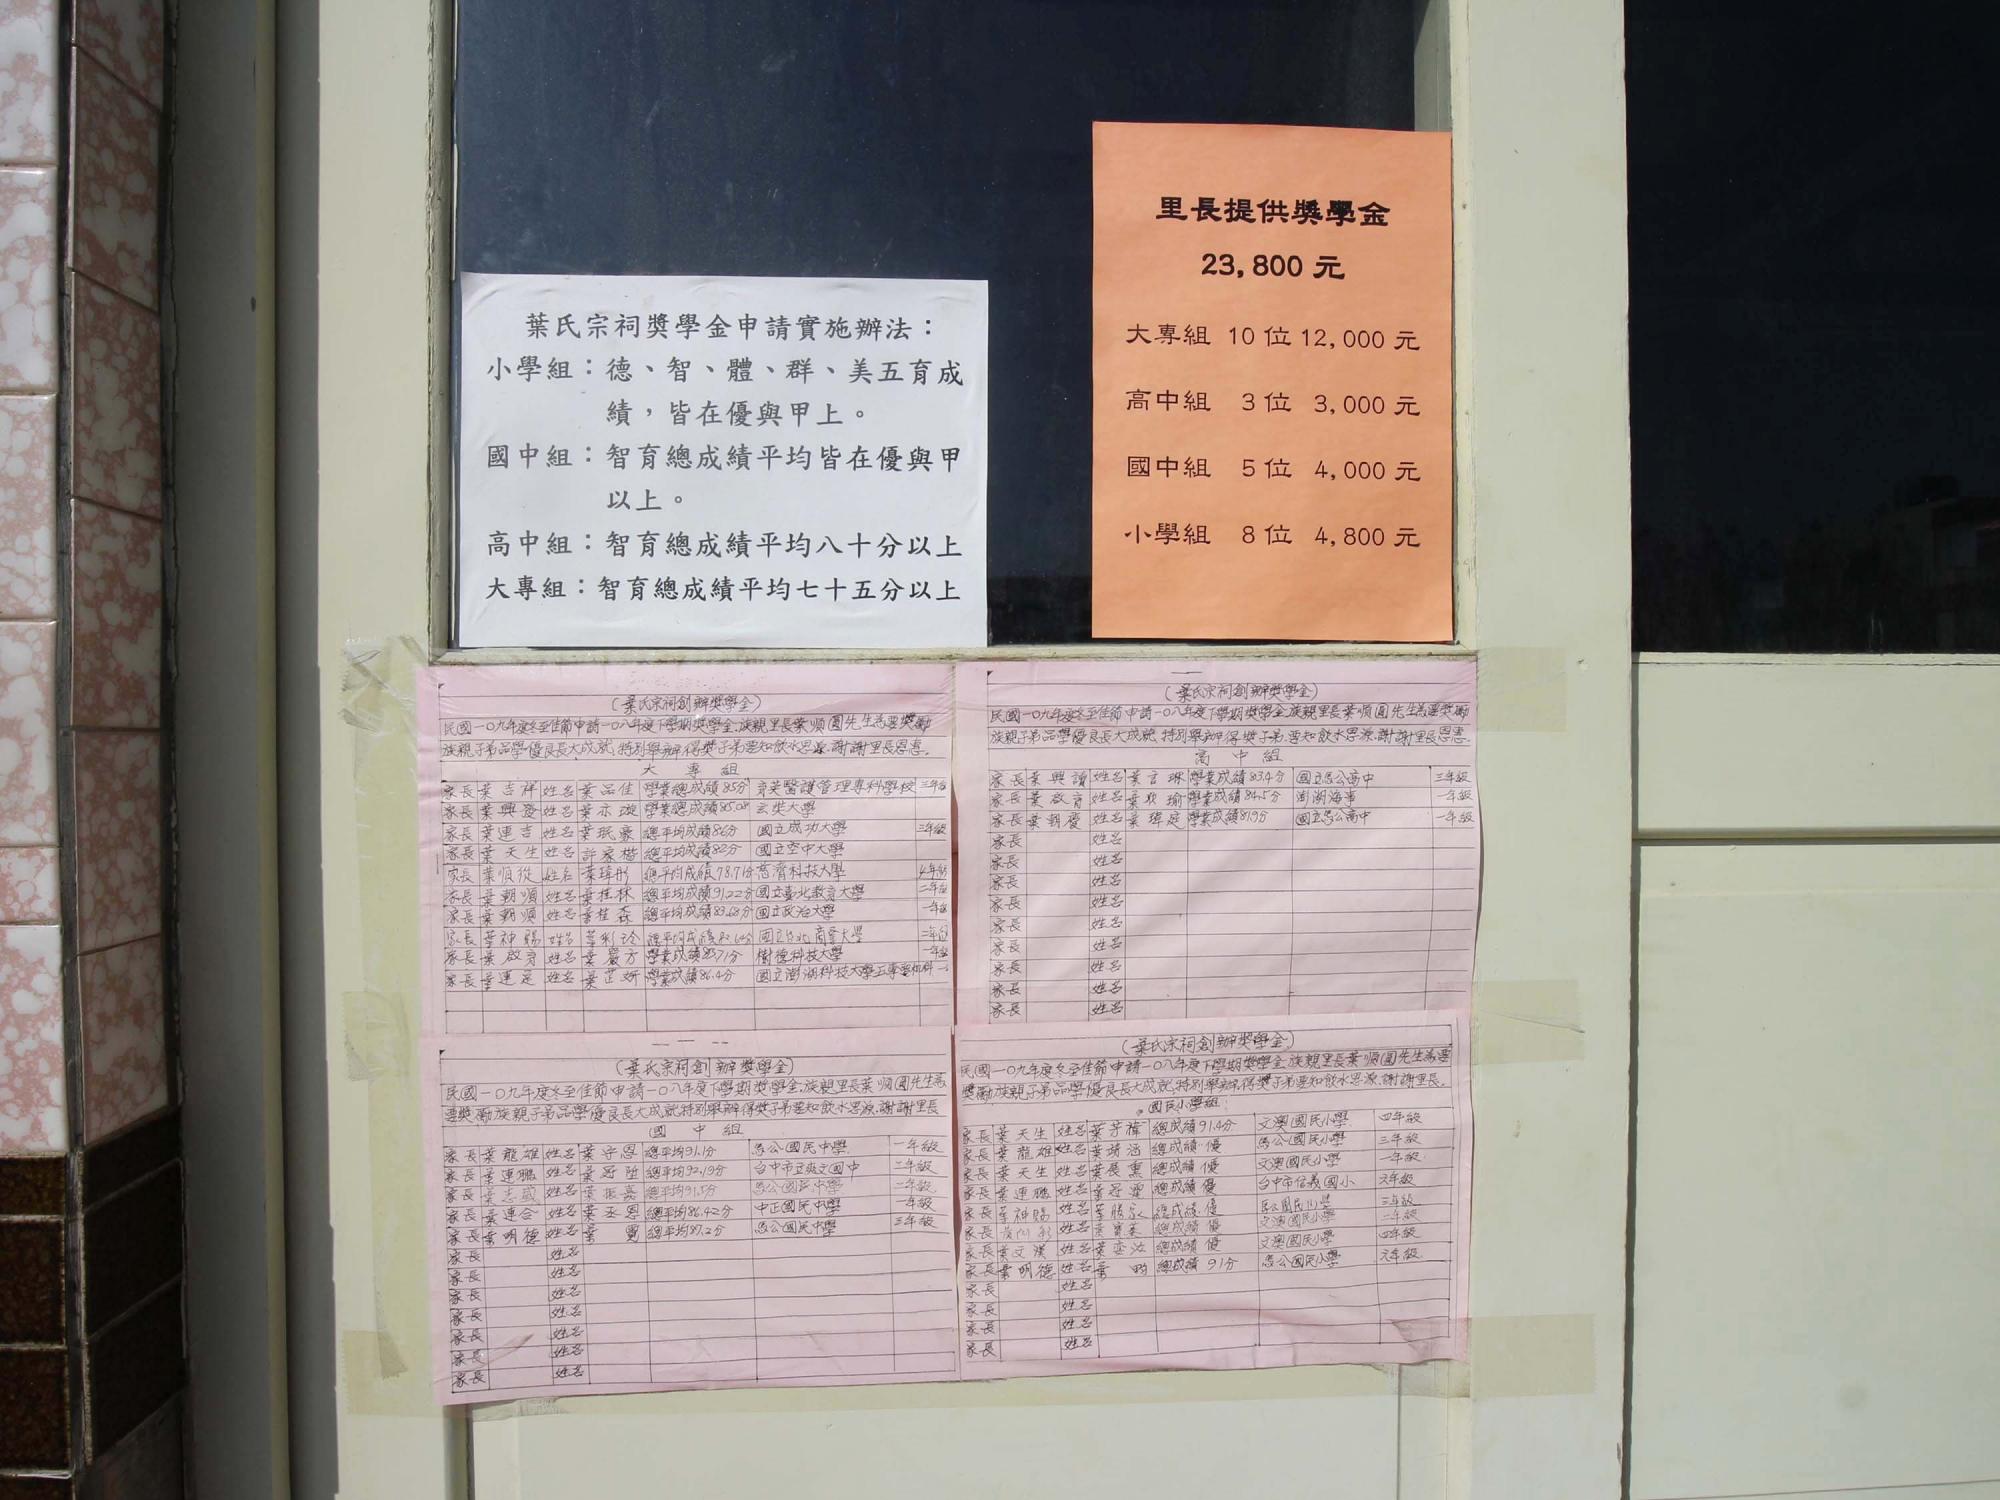 里長提供獎學金
23,800 元
大專組 10 位 12,000 元
高中組 3 位 3,000 元
國中組 5 位 4,000 元
小學組 8 位 4,800 元
葉氏宗祠獎學金申請實施辦法：
小學組：德、智、體、群、美五育成
績，皆在優與甲上。
國中組：智育總成績平均皆在優與甲
以上。
高中組：智育總成績平均八十分以上
大專組：智育總成績平均七十五分以上
(葉氏宗祠創辦獎學金)
民國一〇九年度冬至佳節申請一〇八年度下學期獎學金,族親里長葉順國先生為要獎勵
族親子弟品學優良長大成就,特別舉辦得獎子弟要知飲水思源,謝謝里長恩惠.
大專組
家長 葉吉祥 姓名 葉品佳 學業總成績85分 育英醫護管理專科學校 三年級
家長 葉興 姓名 葉亦 學業總成績85.08 玄奘大學
家長 葉連吉 姓名 葉珉豪 總平均成績86分 國立成功大學 三年級
家長 葉天生 姓名 許家楷 總平均成績82分 國立空中大學
家長 葉順從 姓名 葉瑋彤 總平均成績78.71分 慈濟科技大學 4年級
家長 葉朝順 姓名 葉桂林 總平均成績91.22分 國立臺北教育大學 二年級
家長 葉朝順 姓名 葉桂森 總平均成績83.68分 國立政治大學 一年級
家長 葉神賜 姓名 葉彩玲 總平均成績 國立台北商業大學
家長 葉啟育 姓名 葉 方 學業成績85.71分 樹德科技大學 一年級
家長 葉連足 姓名 葉芷妍 學業成績86.4分 國立澎湖科技大學五專
(葉氏宗祠創辦獎學金)
民國一〇九年度冬至佳節申請一〇八年度下學期獎學金,族親里長葉順國先生為要獎勵
族親子弟品學優良長大成就,特別舉辦得獎子弟要知飲水思源,謝謝里長恩惠.
高中組
家長 葉興讀 姓名 葉言 學業成績83.4分 國立馬公高中 三年級
家長 葉啟育 姓名 葉 瑜 學業成績84.5分 澎湖海事 一年級
家長 葉朝慶 姓名 葉瑋廷 學業成績81.9分 國立馬公高中 一年級
家長 姓名
家長 姓名
家長 姓名
家長 姓名
家長 姓名
家長 姓名
家長 姓名
家長 姓名
家長 姓名
(葉氏宗祠創辦獎學金)
民國一〇九年度冬至佳節申請一〇八年度下學期獎學金,族親里長葉順國先生為
要獎勵族親子弟品學優良長大成就,特別舉辦得獎子弟要知飲水思源,謝謝里長
國中組
家長 葉龍雄 姓名 葉守恩 總平均91.1分 馬公國民中學 一年級
家長 葉連鵬 姓名 葉冠陞 總平均92.19分 台中市立爽文國中 二年級
家長 葉志盛 姓名 葉振嘉 總平均91.5分 馬公國民中學 二年級
家長 葉連合 姓名 葉丞恩 總平均86.42分 中正國民中學 一年級
家長 葉明德 姓名 葉 總平均87.2分 馬公國民中學 三年級
家長 姓名
家長 姓名
家長 姓名
家長 姓名
家長 姓名
家長 姓名
家長 姓名
(葉氏宗祠創辦獎學金)
民國一〇九年度冬至佳節申請一〇八年度下學期獎學金,族親里長葉順國先生為要
獎勵族親子弟品學優良長大成就,特別舉辦得獎子弟要知飲水思源,謝謝里長.
國民小學組:
家長 葉天生 姓名 葉芳禕 總成績91.4分 文澳國民小學 四年級
家長 葉龍雄 姓名 葉琦涵 總成績 優 馬公國民小學 三年級
家長 葉天生 姓名 葉 總成績 優 文澳國民小學 一年級
家長 葉連鵬 姓名 葉冠 總成績 優 台中市信義國小 六年級
家長 葉神賜 姓名 葉勝永 總成績 優 馬公國民小學 三年級
家長 姓名 葉寶 總成績 優 文澳國民小學 二年級
家長 葉文漢 姓名 葉 汝 總成績 優 文澳國民小學 四年級
家長 葉明德 姓名 葉 總成績 91分 馬公國民小學 六年級
家長 姓名
家長 姓名
家長 姓名
家長 姓名